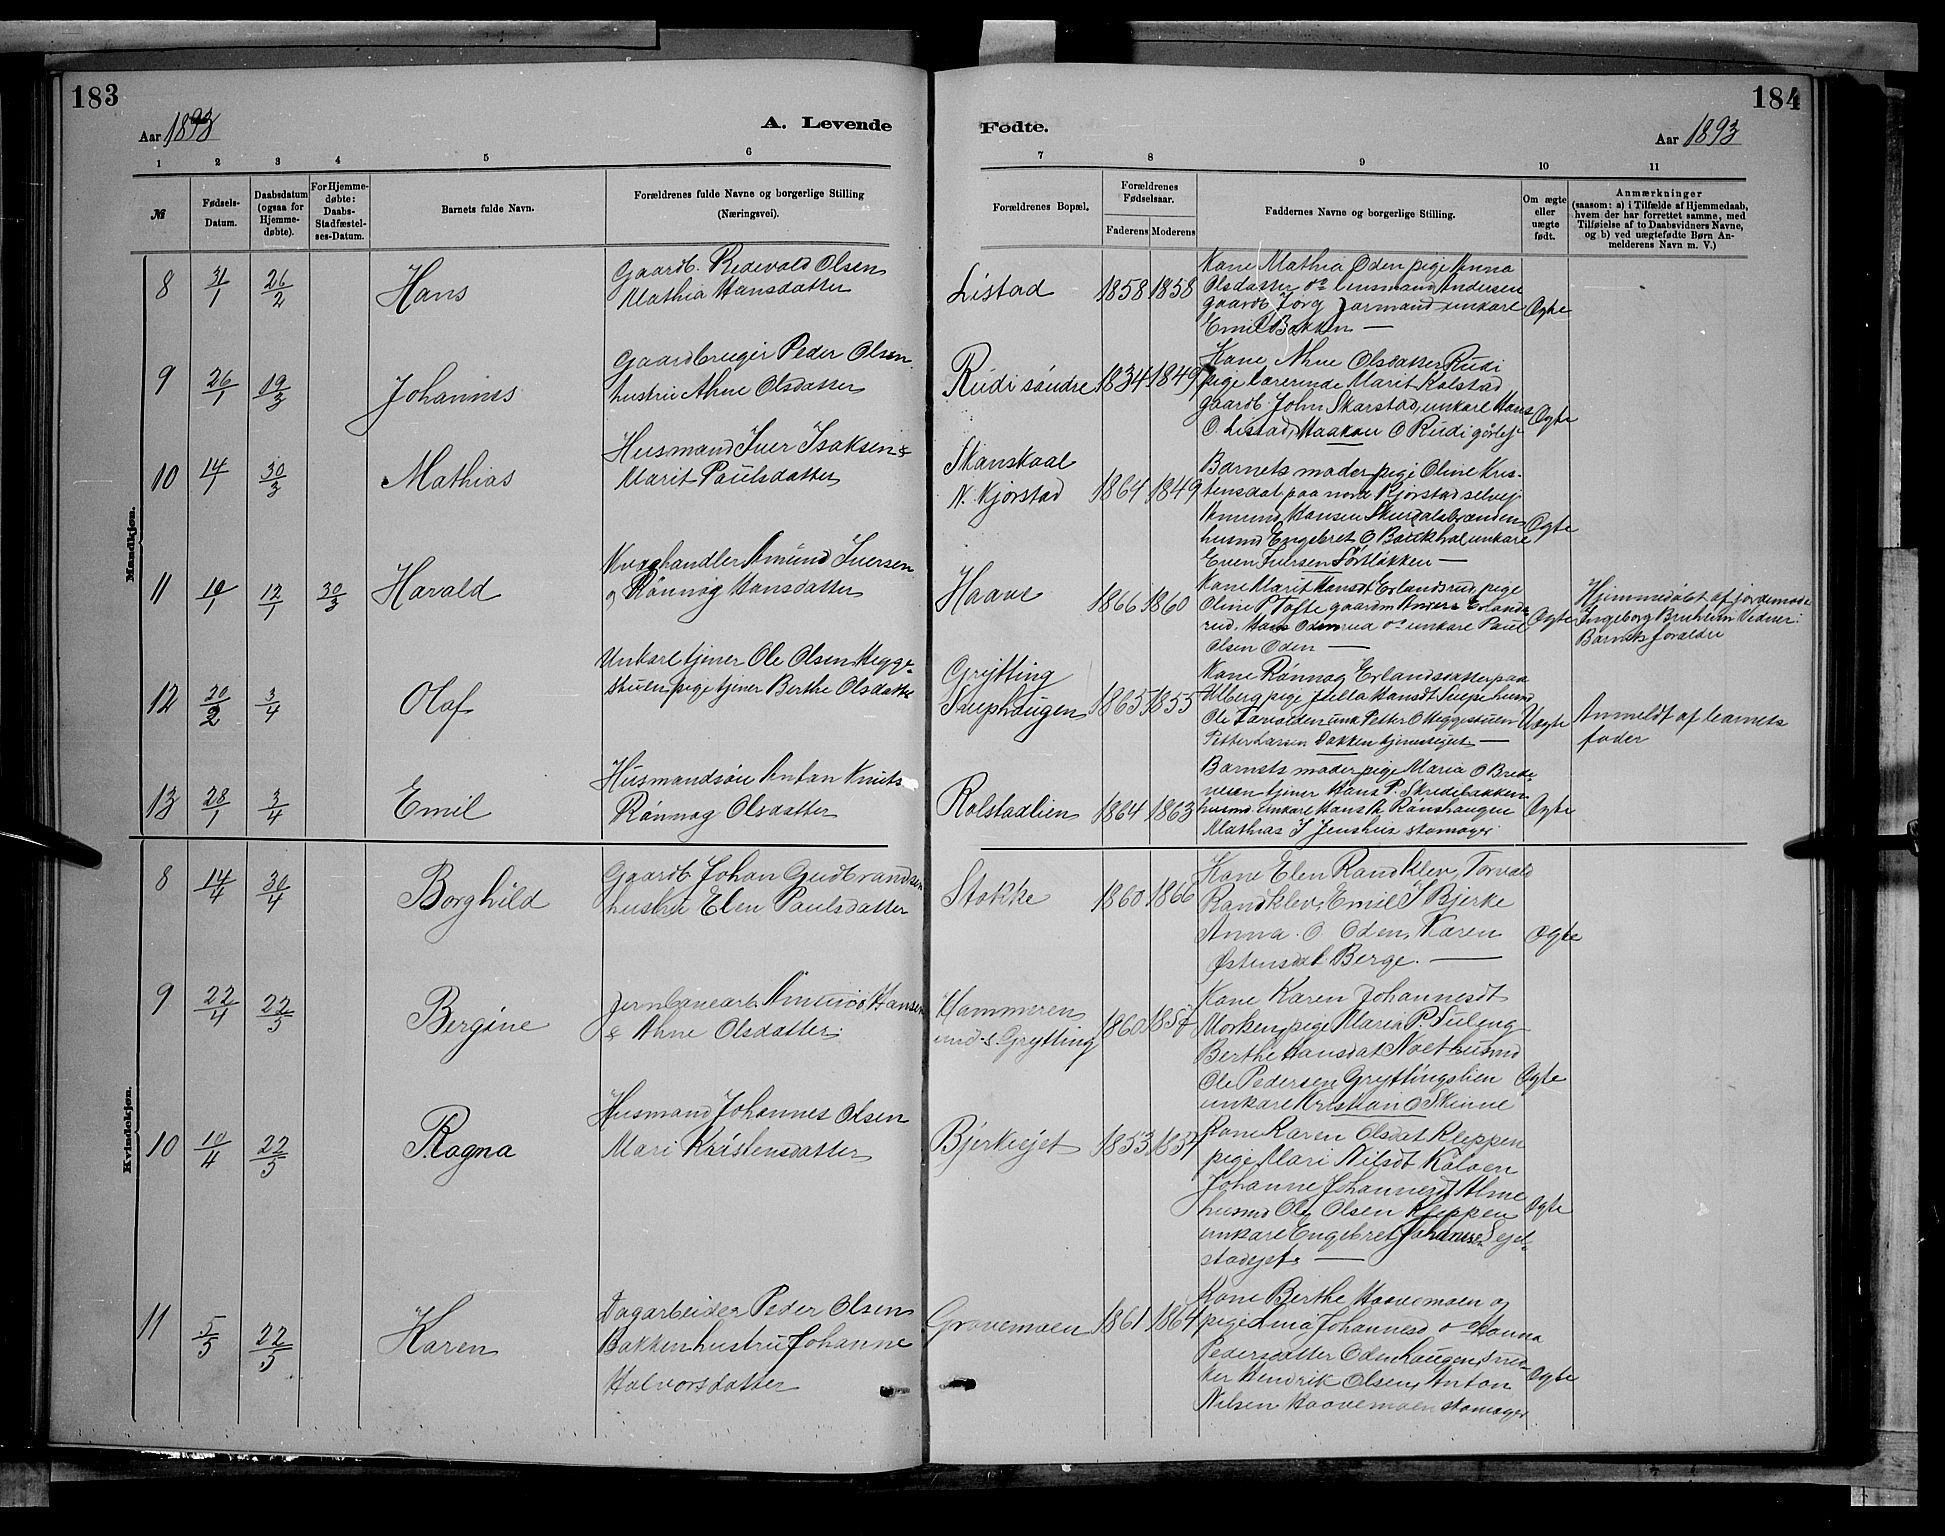 183
Aar 1893
A. Levende
1 2 3 4 5 6
№
Fødsels-Datum.
Daabsdatum (ogsaa for Hjemme-døbte).
For Hjemme-døbte: Daabs-Stadfæstel-ses-Datum.
Barnets fulde Navn.
Forældrenes fulde Navne og borgerlige Stilling
(Næringsvei).
Mandkjøn.
8 31/1 26/2 Hans
Gaardb. Redevald Olsen
Mathia Hansdatter
9 26/1 19/3 Johannes
Gaardbruger Peder Olsen
hustru Ahne Olsdatter
10 14/1 30/3 Mathias
Husmand Iver Isaksen &
Marit Paulsdatter
11 10/1 12/1 30/3 Harald
Kvæghandler Amund Iversen
og Rønnog Hansdatter
12 20/2 3/4 Olaf
Unkarl tjener Ole Olsen Hegge-
stuen, pige tjener Berthe Olsdatter
13 28/1 3/4 Emil
Husmandsøn Anton Knuts
Rønnog Olsdatter
Kvindekjøn.
8 14/4 30/4 Borghild
Gaardb Johan Gudbrandsen
hustru Elen Paulsdatter
9 22/4 22/5 Bergine
Jernbanearb. Amund Hansen
& Ahne Olsdatter
10 10/4 22/5 Ragna
Husmand Johannes Olsen
Mari Kristensdatter
11 5/5 22/5 Karen
Dagarbeider Peder Olsen
Bakken hustru Johanne
Halvorsdatter
184
Fødte.
Aar 1893
7 8 9 10 11
Forældrenes Bopæl.
Forældrenes Fødselsaar.
Faderens Moderens
Faddernes Navne og borgerlige Stilling.
Om ægte eller uægte født.
Anmærkninger
(saasom: a) i Tilfælde af Hjemmedaab,
hvem der har forrettet samme, med
Tilføielse af to Daabsvidners Navne,
og b) ved uægtefødte Børn An-
melderens Navn m. V.)
Listad 1858 1858
Kone Mathia Oden pige Anna
Olsdatter do lensmand Andersen
gaardb. Jørg Formand unkarl
Emil Bakken —
Ægte
Rudi søndre 1834 1849
Kone Ahne Olsdatter Rudi
pige lærerinde Marit Kolstad
gaardb. John Skarstad, unkarl Hans
O. Listad, Haakon O Rudi
Ægte
Skanskaal
N. Kjørstad 1864 1849
Barnets moder, pige Oline Kris-
tensdat paa nord Kjørstad selvej
Amund Hansen
husmd Engebret O unkarl
Even Iversen
Ægte
Haave 1866 1860
Kone Marit Hansdt Erlandsrud, pige
Oline P. Tofte gaardm Anders Erlands-
rud, Hans do unkarl Paul
Olsen Oden —
Ægte
Hjemmedøbt af jordemoder
Ingeborg Bruhlien Vidner:
Barnets foreldre
Grytting
1865 1855
Kone Rønnog Erlandsdatter paa
Ulberg pige Hansdt husmd
Ole unk Petter O Heggestuen
Petter Larsen Bakken —
Uægte
Anmeldt af barnets
fader
Kolstadlien 1864 1863
Barnets moder, pige Maria O Brede-
vesen tjener Hans P. Skridebakken
husmd unkarl Hans A Rønshaugen
Mathias J Jenshus skomager
Ægte
Stokke 1860 1866
Kone Elen Randklev, Torvald
Randklev, Emil S Bjerke
Anna O. Oden, Karen
Østensdat Berge. —
Ægte
Hammeren
und. s. Grytting 1860 1857
Kone Karen Johannesdt
Morken, pige Maria P.
Berthe Hansdat husmd
Ole Pedersen Gryttingslien
unkarl Kristian O Skinne
Ægte
Bjerkeejet 1853 1857
Kone Karen Olsdat Kleppen
pige Mari Nilsdt Kalven
Johanne Johannesdt Alme
husmd Ole Olsen Kleppen
unkarl Engebret Johannes.
stadejet. —
Ægte
Gravemoen 1861 1864
Kone Berthe Haavemoen og
pige Johannesd do Hanna
Pedersdatter Odenhaugen, sned-
ker Hendrik Olsen, Anton
Nilsen Haavemoen skomager
Ægte